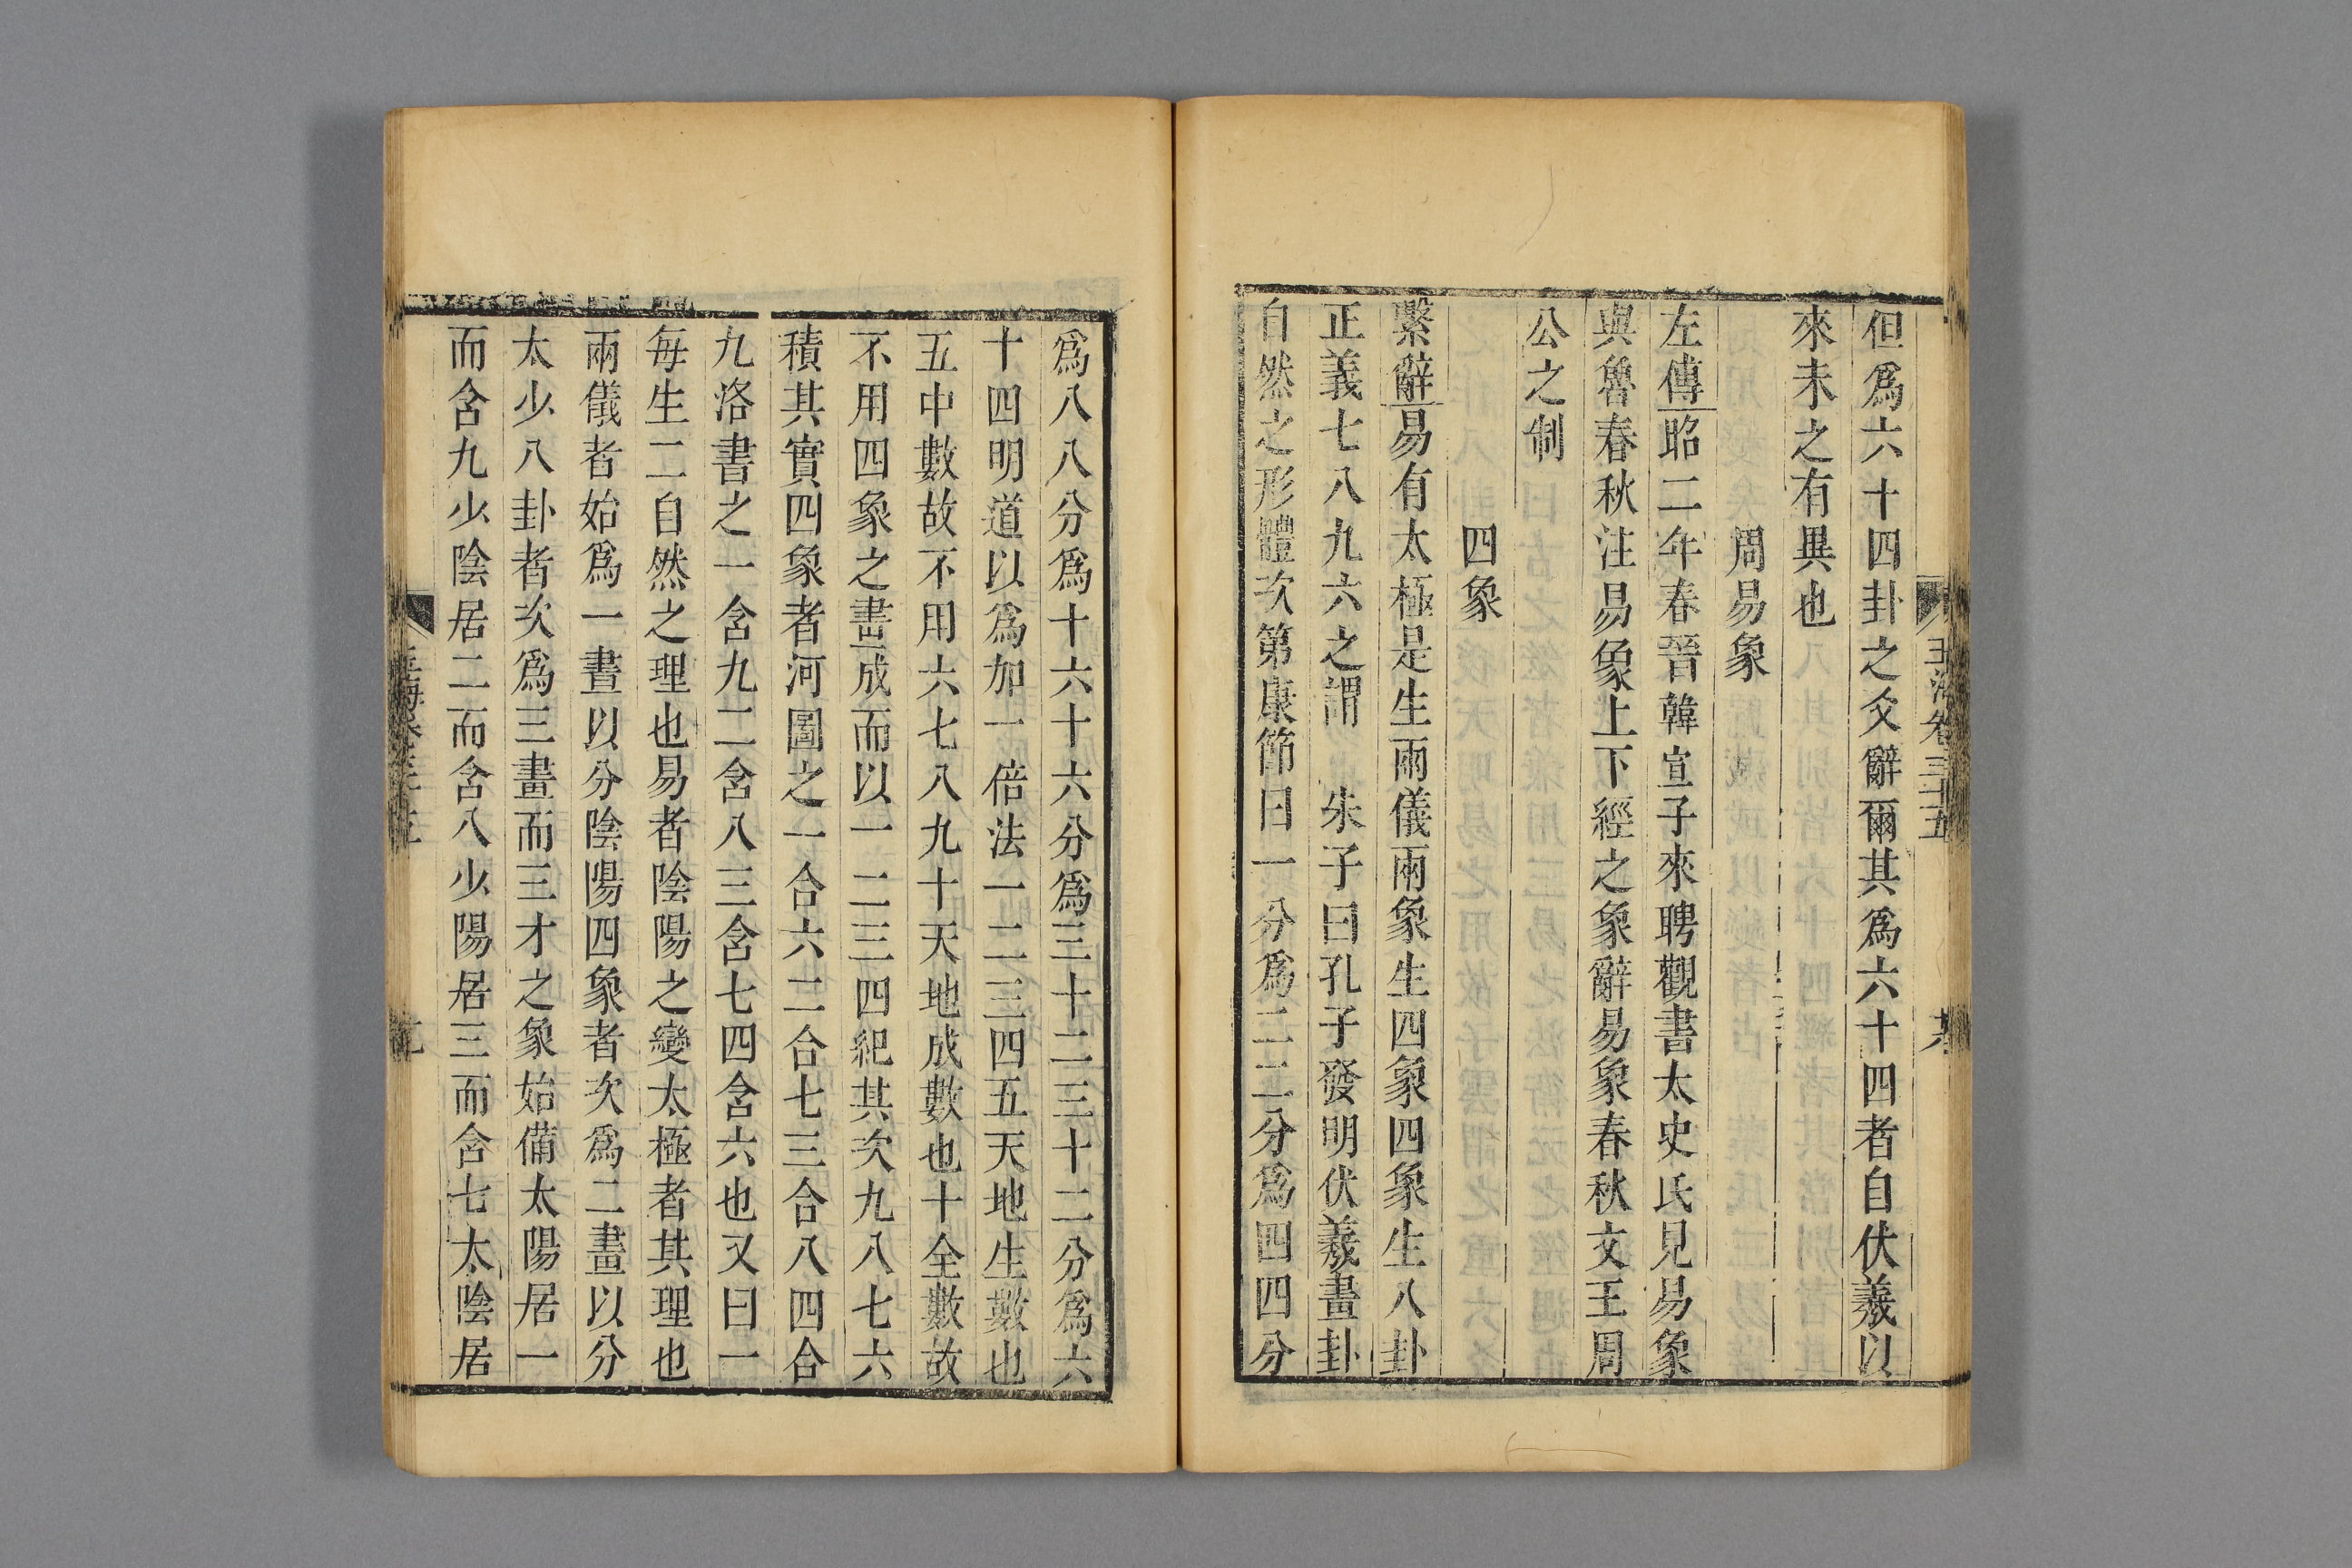 玉海卷三十五
但爲六十四卦之爻辭爾其爲六十四者自伏羲以
來未之有異也
周易象
左傳昭二年春晉韓宣子來聘觀書太史氏見易象
與魯春秋注易象上下經之象辭易象春秋文王周
公之制
四象
繫辭易有太極是生兩儀兩象生四象四象生八卦
正義七八九六之謂 朱子曰孔子發明伏羲畫卦
自然之形體次第康節曰一分爲二二分爲四四分
爲八八分爲十六十六分爲三十二三十二分爲六
十四明道以爲加一倍法一二三四五天地生數也
五中數故不用六七八九十天地成數也十全數故
不用四象之畫成而以一二三四紀其次九八七六
積其實四象者河圖之一合六二合七三合八四合
九洛書之一含九二含八三含七四含六也又曰一
每生二自然之理也易者陰陽之變太極者其理也
兩儀者始爲一畫以分陰陽四象者次爲二畫以分
太少八卦者次爲三畫而三才之象始備太陽居一
而含九少陰居二而含八少陽居三而含七太陰居